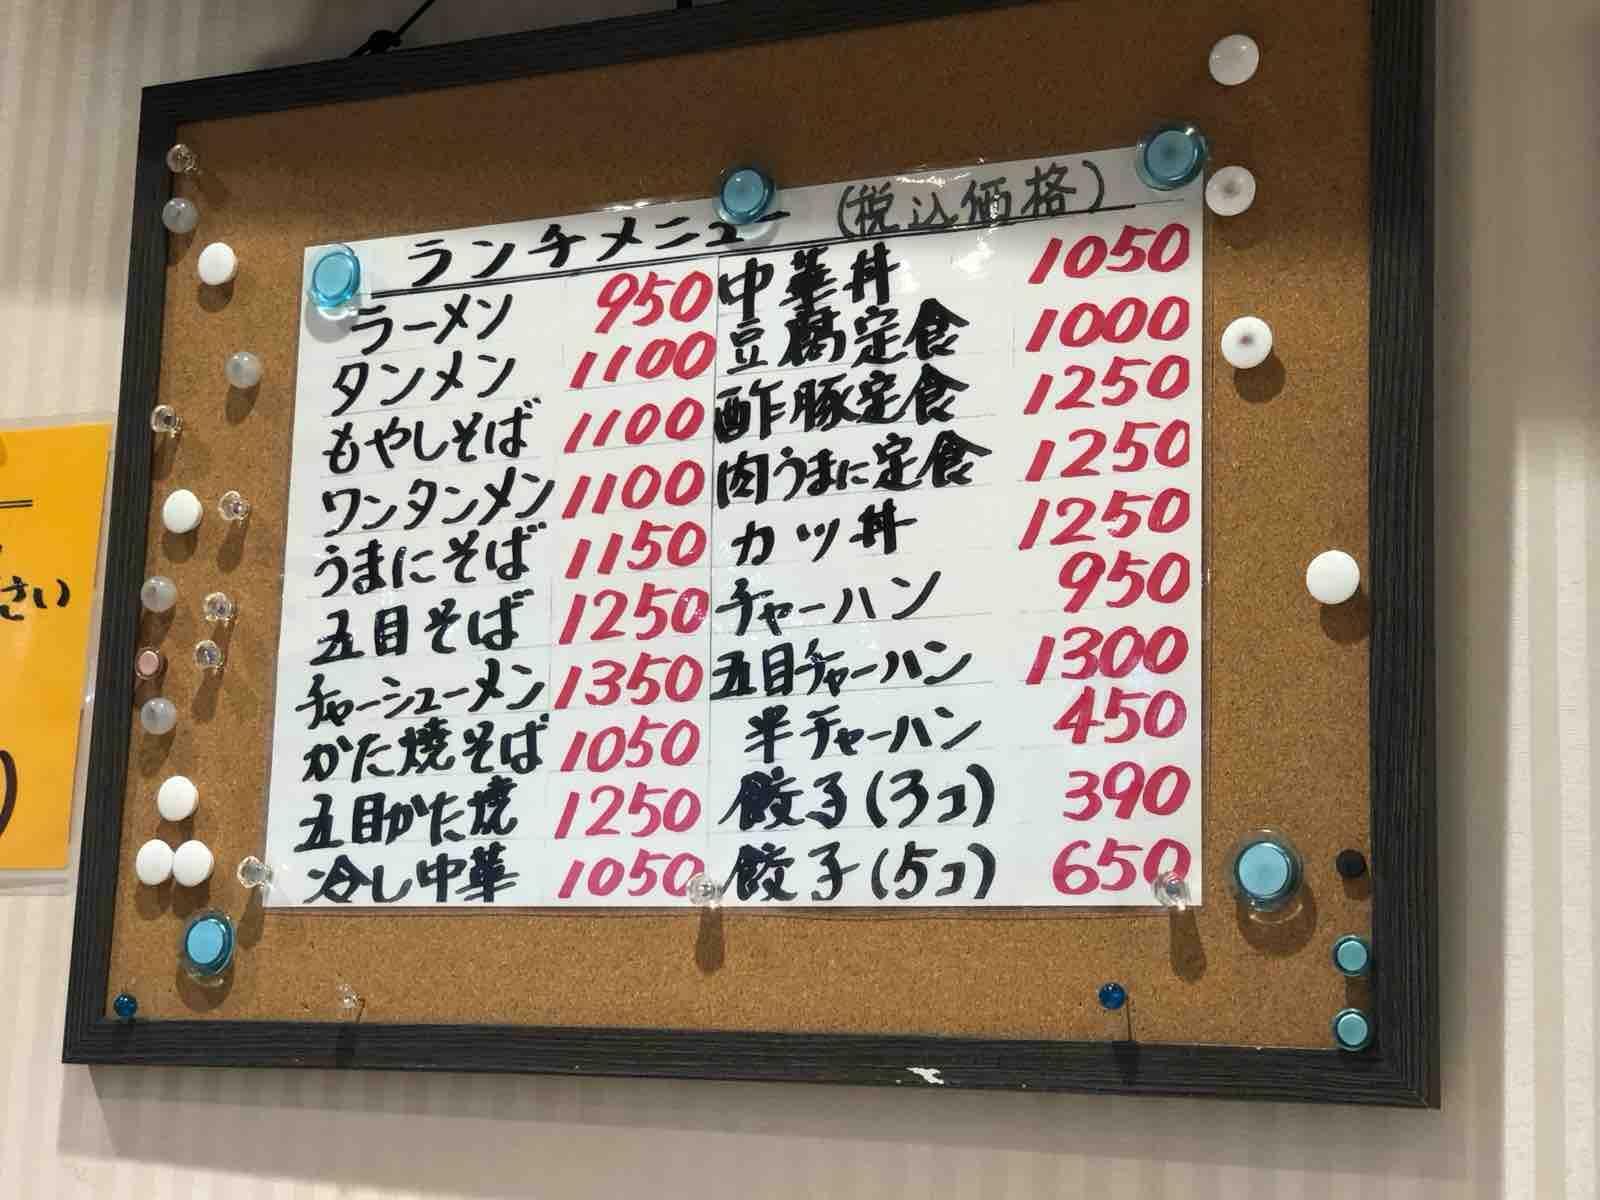 ランチメニュー (税込価格)
ラーメン 950
タンメン 1100
もやしそば 1100
ワンタンメン 1100
うまにそば 1150
五目そば 1250
チャーシューメン 1350
かた焼そば 1050
五目かた焼 1250
冷し中華 1050
中華丼 1050
豆腐定食 1000
酢豚定食 1250
肉うまに定食 1250
カツ丼 1250
チャーハン 950
五目チャーハン 1300
半チャーハン 450
餃子(3コ) 390
餃子(5コ) 650
さい